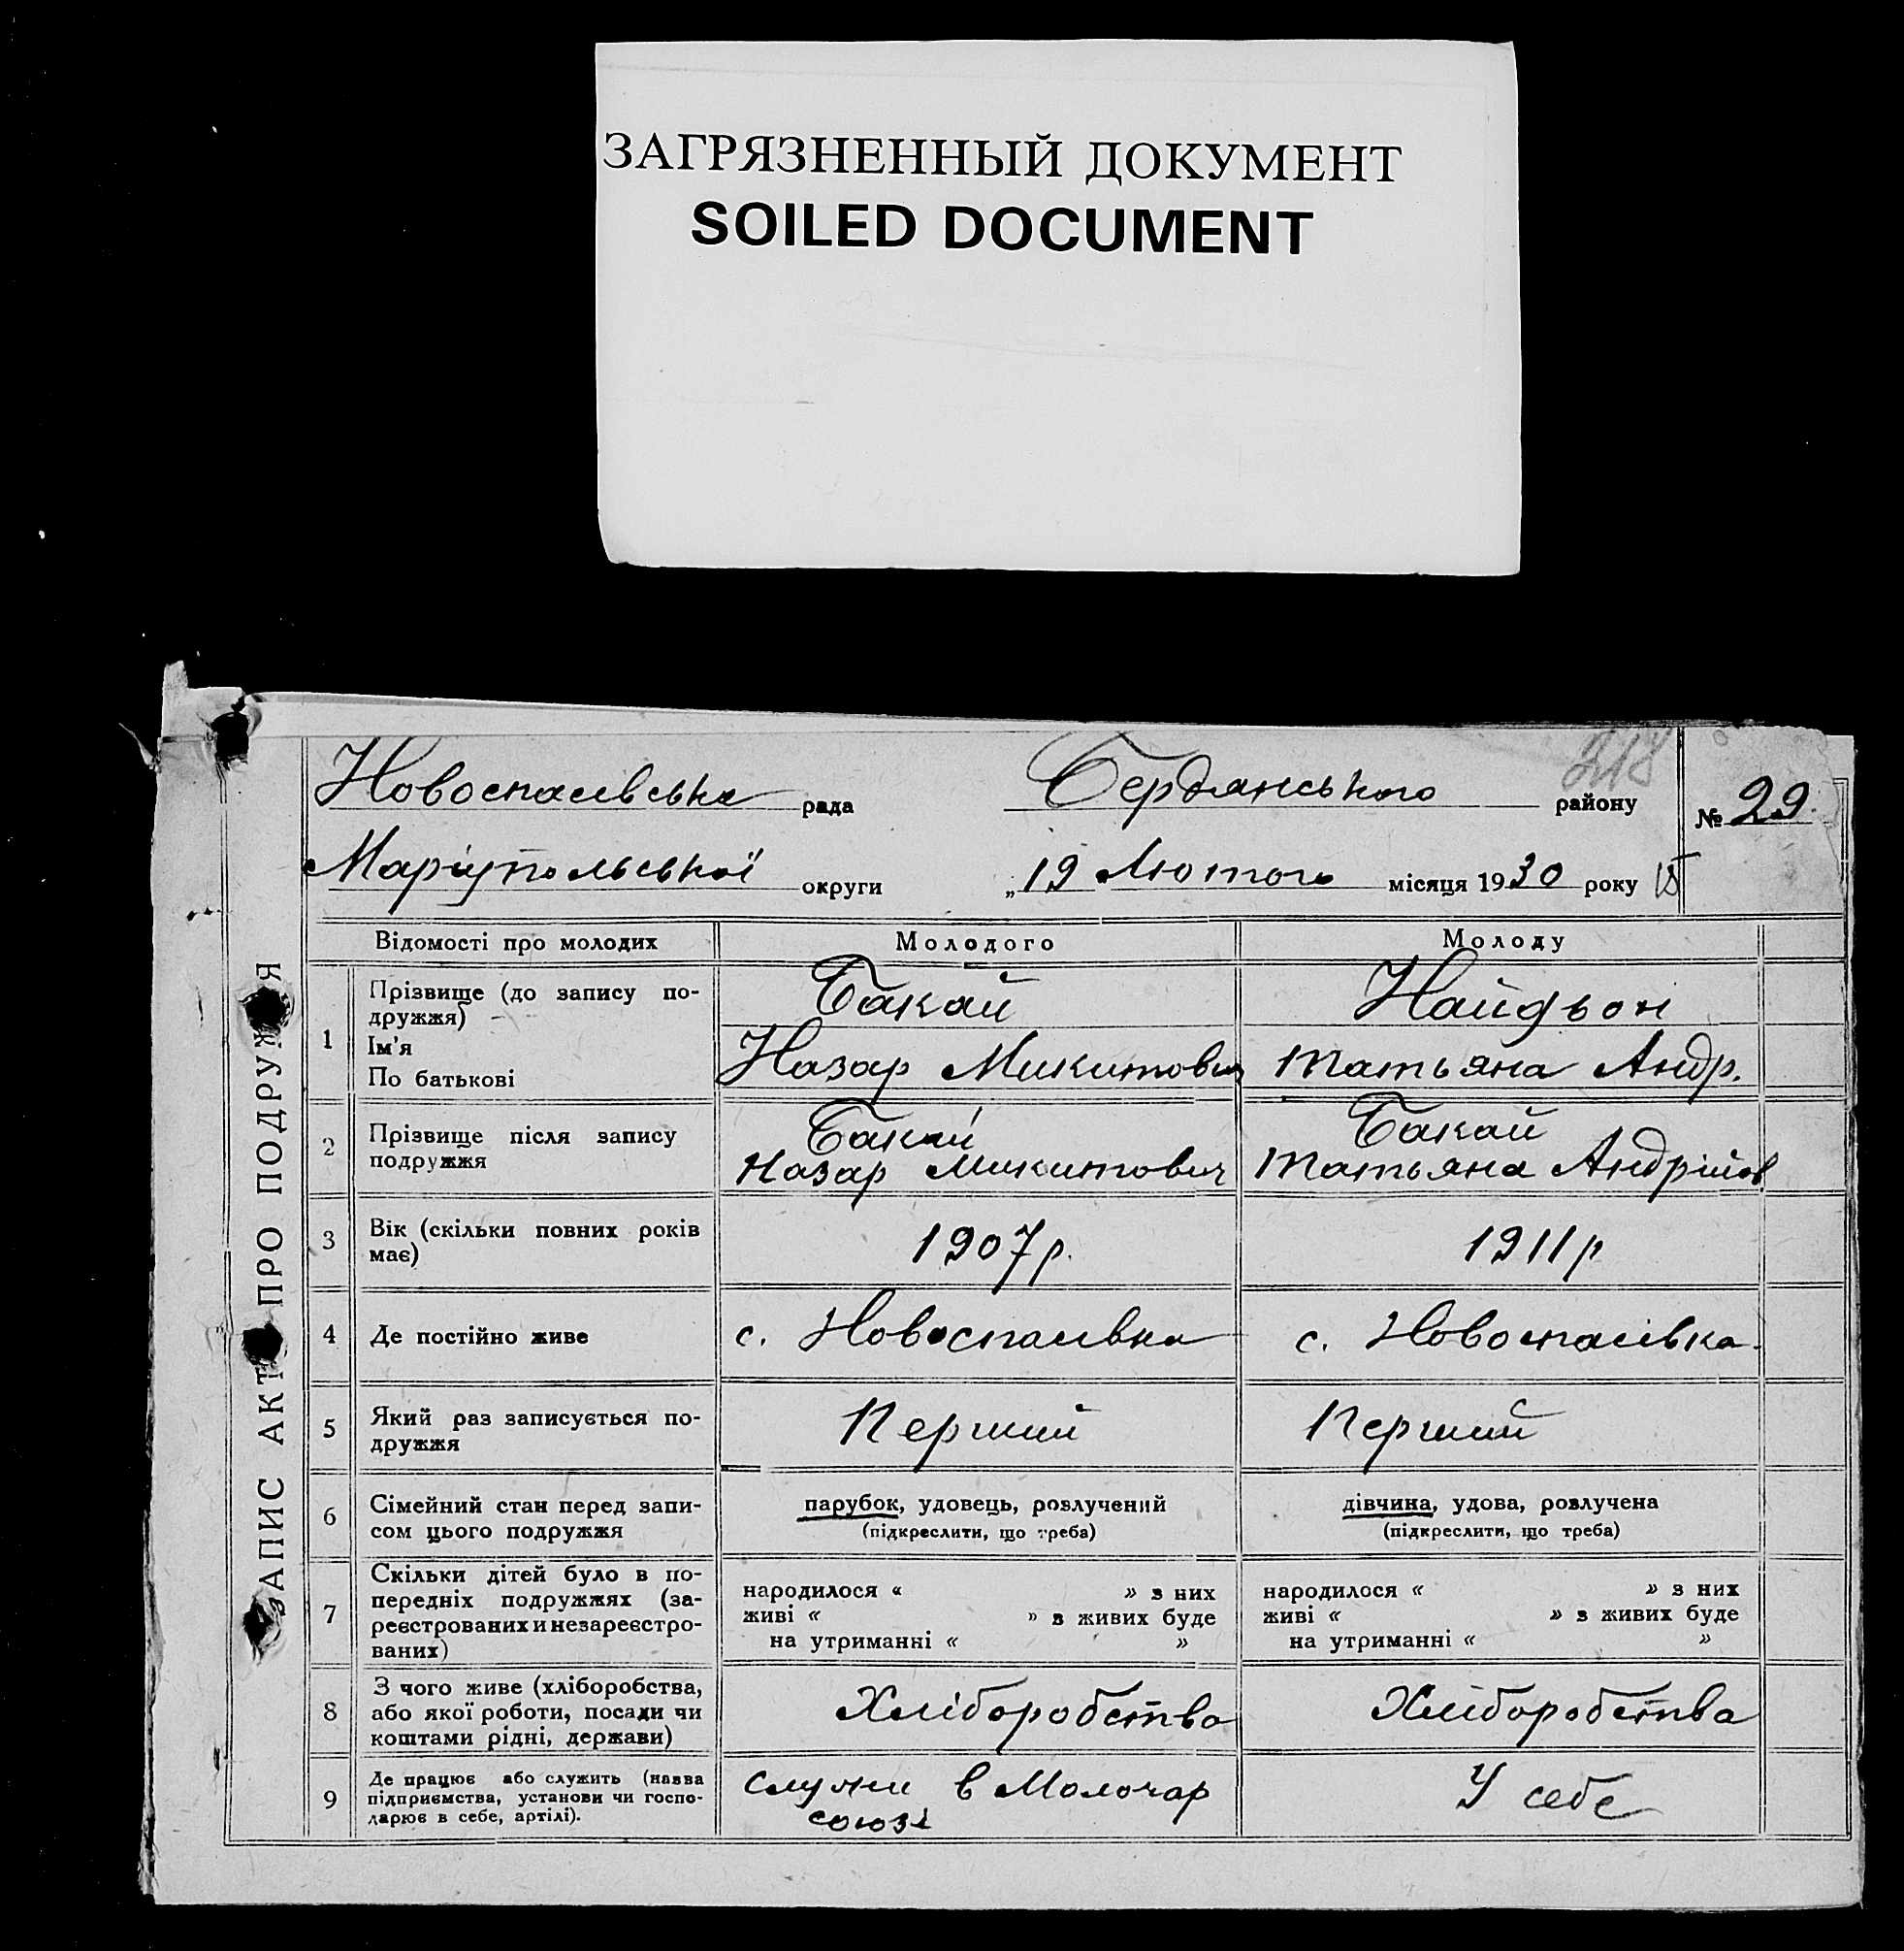 ЗАГРЯЗНЕННЫЙ ДОКУМЕНТ
SOILED DOCUMENT
218
Новоспасівська рада Бердянського району № 29.
Маріупольської округи „19 Лютого місяця 1930 року
ЗАПИС АКТ ПРО ПОДРУЖЖЯ
Відомості про молодих Молодого Молоду
1 Прізвище (до запису по-
дружжя)
Бакай Найдьон
Ім'я
По батькові
Назар Микитович Татьяна Андр.
2 Прізвище після запису
подружжя
Бакай Бакай
Назар Микитович Татьяна Андріїов
3 Вік (скільки повних років
має)
1907р. 1911р
4 Де постійно живе с. Новоспасівка с. Новоспасівка.
5 Який раз записується по-
дружжя
Перший Перший
6 Сімейний стан перед запи-
сом цього подружжя
парубок, удовець, розлучений дівчина, удова, розлучена
(підкреслити, що треба) (підкреслити, що треба)
7 Скільки дітей було в по-
передніх подружжях (за-
реєстрованих и незареєстро-
ваних)
народилося « » з них народилося « » з них
живі « » з живих буде живі « » з живих буде
на утриманні « » на утриманні « »
8 З чого живе (хліборобства,
або якої роботи, посади чи
коштами рідні, держави)
Хліборобства Хліборобства
9 Де працює або служить (назва
підприємства, установи чи госпо-
дарює в себе, артілі).
служи в Молочар У себе
союзі